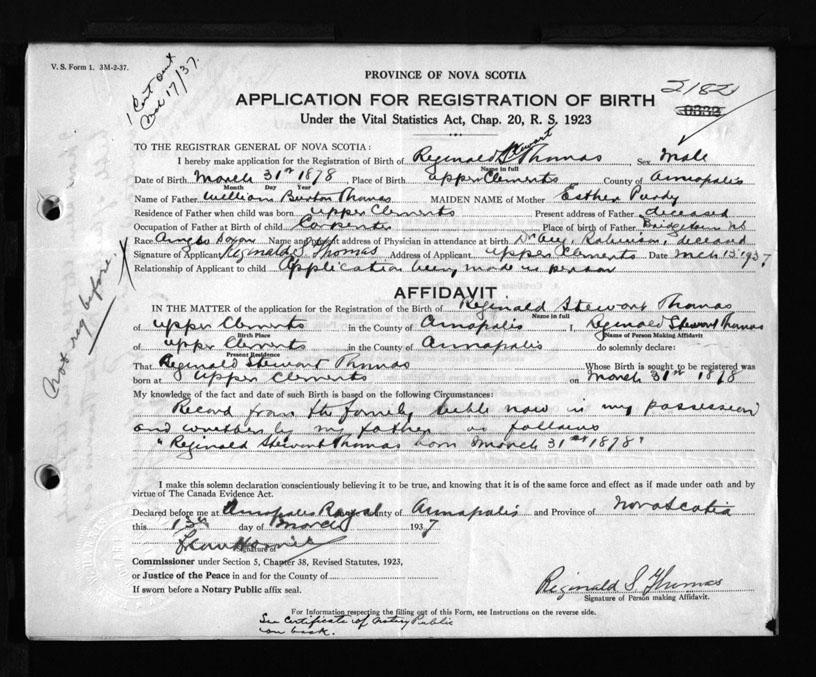 V. S. Form 1. 3M-2-37.
1 Cert sent
17/37.
PROVINCE OF NOVA SCOTIA
2182
APPLICATION FOR REGISTRATION OF BIRTH
Under the Vital Statistics Act, Chap. 20, R. S. 1923
TO THE REGISTRAR GENERAL OF NOVA SCOTIA:
Stewart
I hereby make application for the Registration of Birth of Reginald Thomas Sex Male
Name in full
Date of Birth March 31st 1878, Place of Birth Upper Clements County of Annapolis
Month Day Year
Name of Father William Burton Thomas MAIDEN NAME of Mother Esther Purdy
Residence of Father when child was born Upper Clements Present address of Father deceased
Occupation of Father at Birth of Child Carpenter Place of birth of Father Bridgetown NS
Race Anglo Saxon Name and present address of Physician in attendance at birth Dr Robinson, deceased
Signature of Applicant Reginald S Thomas Address of Applicant Upper Clements Date Mch 13 1937
Relationship of Applicant to child Application being made in person
Not reg before.
AFFIDAVIT
IN THE MATTER of the application for the Registration of the Birth of Reginald Stewart Thomas
Name in full
of Upper Clements in the County of Annapolis I, Reginald Stewart Thomas
Birth Place Name of Person Making Affidavit
of Upper Clements in the County of Annapolis do solemnly declare:
Present Residence
That Reginald Stewart Thomas Whose Birth is sought to be registered was
born at Upper Clements on March 31st 1878
My knowledge of the fact and date of such Birth is based on the following Circumstances:
Record from the family bible now in my possession
and written by my father as follows
"Reginald Stewart Thomas born March 31st 1878"
I make this solemn declaration conscientiously believing it to be true, and knowing that it is of the same force and effect as if made under oath and by
virtue of The Canada Evidence Act.
Declared before me at Annapolis Royal County of Annapolis and Province of Nova Scotia
this 13th day of March 1937
Signature of
Commissioner under Section 5, Chapter 38, Revised Statutes, 1923,
or Justice of the Peace in and for the County of
If sworn before a Notary Public affix seal.
Reginald S. Thomas
Signature of Person making Affidavit.
For Information respecting the filling out of this Form, see Instructions on the reverse side.
See Certificate of Notary Public
on back.